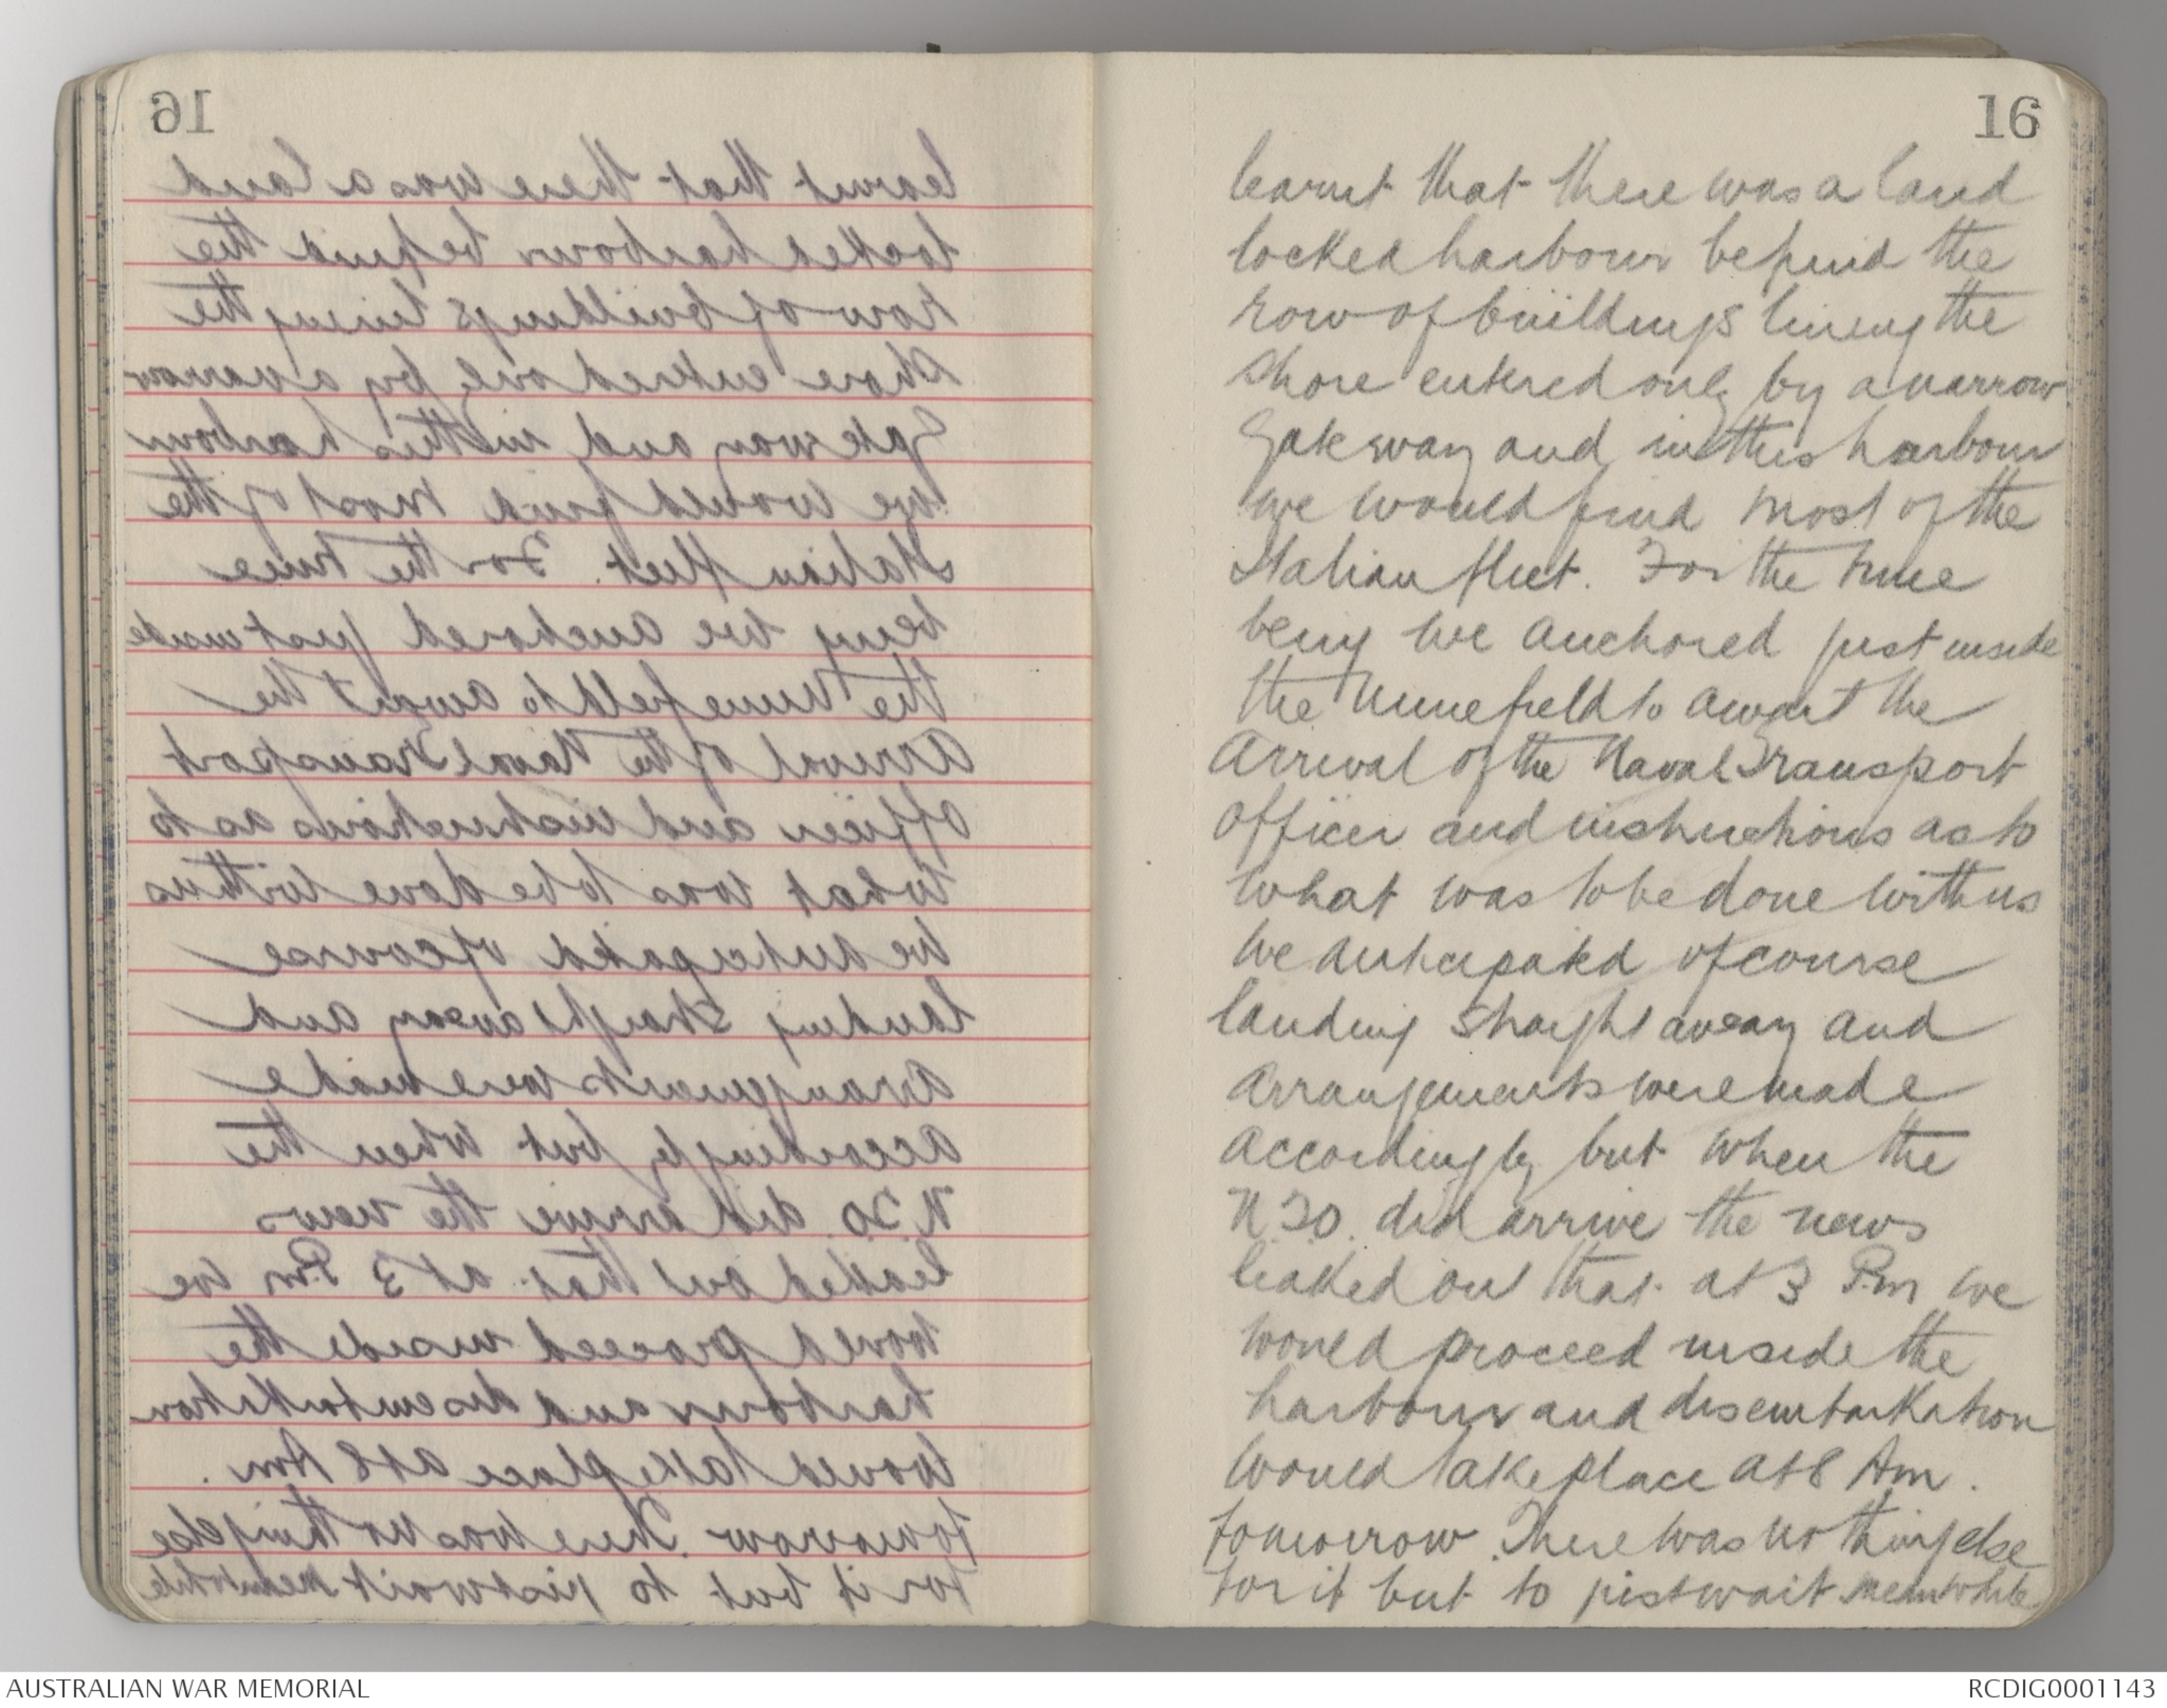 16
learnt that there was a land
locked harbour behind the
row of buildings lining the
shore entered only by a narrow
Gateway and in this harbour
we would find most of the
Italian fleet. For the time
being we anchored just inside
the minefield to await the
Arrival of the Naval Transport
Officer and instructions as to
what was to be done with us
We anticipated of course
landing straight away and
Arrangements were made
accordingly but when the
N.T.O. did arrive the news
leaked out that at 3 P.m we
would proceed inside the
harbour and disembarkation
would take place at 8 Am.
tomorrow. There was nothing else
for it but to just wait meanwhile
AUSTRALIAN WAR MEMORIAL
RCDIG0001143